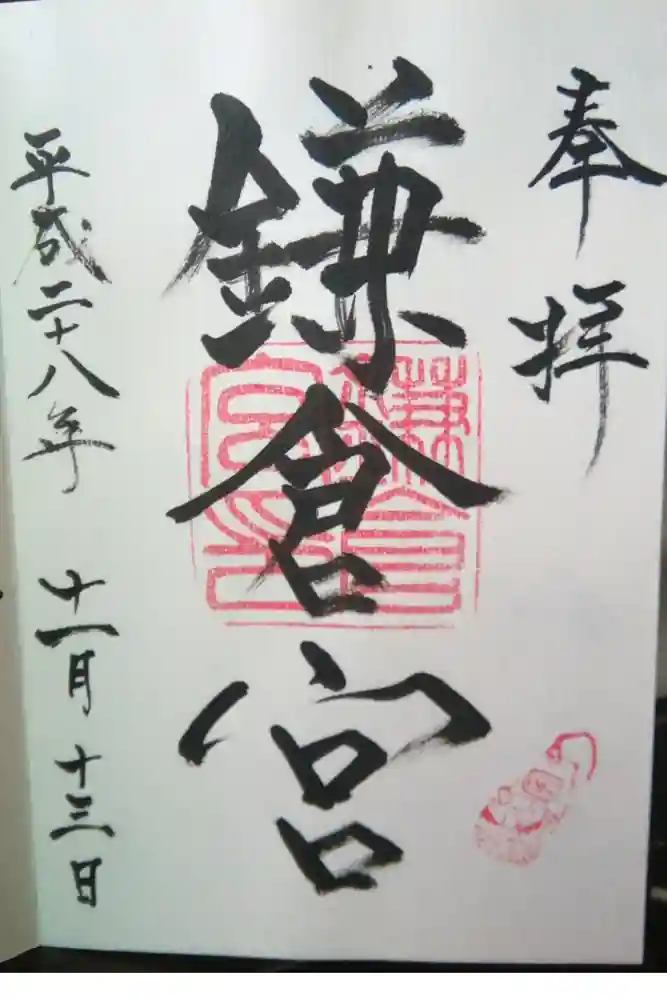 奉拝
鎌倉宮
鎌倉宮印
平成二十八年 十一月 十三日